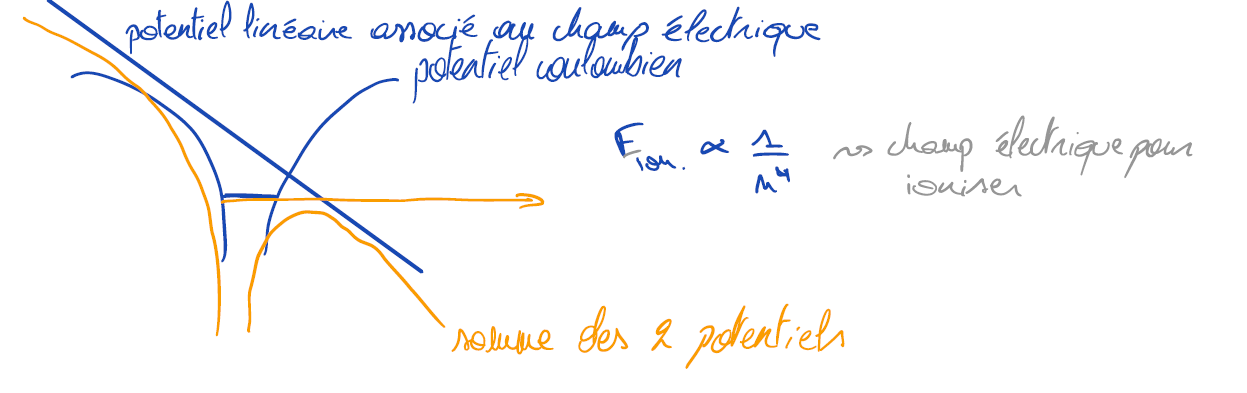 potentiel linéaire associé au champ électrique
potentiel coulombien
F_ion. ∝ 1/n⁴ ⇝ champ électrique pour
ioniser
somme des 2 potentiels